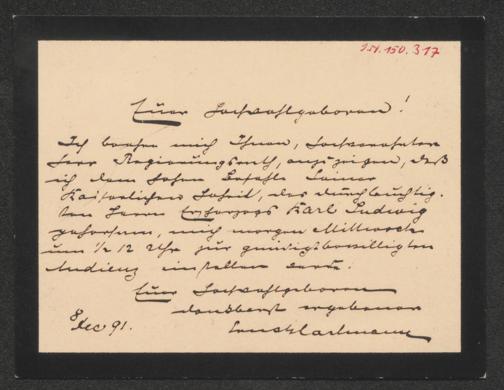 I.N. 150.317
Euer Hochwohlgeboren!
Ich beehre mich Ihnen, hochverehrter
Herr Regierungsrath, anzuzeigen, daß
ich dem hohen Befehle Seiner
Kaiserlichen Hoheit, des durchlauchtig-
sten Herrn Erzherzogs Karl Ludwig
gehorsam, mich morgen Mittwoch
um 1/2 12 Uhr zur gnädigst bewilligten
Audienz einstellen werde.
Euer Hochwohlgeboren
dankbarst ergebener
Ernst Hartmann
8 Dec 91.